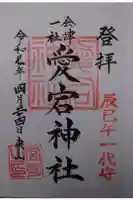 登拝
辰巳午一代守
会津
一社
愛宕神社
令和七年四月二四日